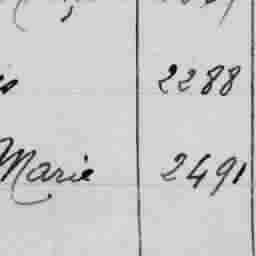 2288
Marie 2491